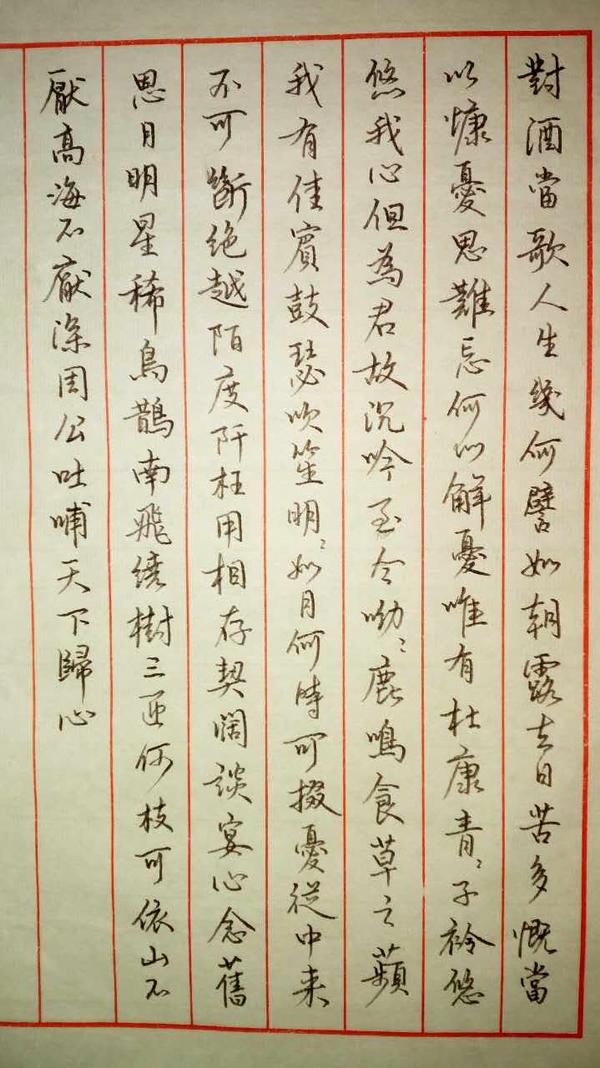 對酒當歌人生幾何譬如朝露去日苦多慨當
以慷憂思難忘何以解憂唯有杜康青〻子衿悠
悠我心但為君故沉吟至今呦〻鹿鳴食草之蘋
我有佳賓鼓瑟吹笙明〻如月何時可掇憂從中来
不可斷绝越陌度阡枉用相存契闊談宴心念舊
思月明星稀烏鵲南飛繞樹三匝何枝可依山不
厭高海不厭深周公吐哺天下歸心